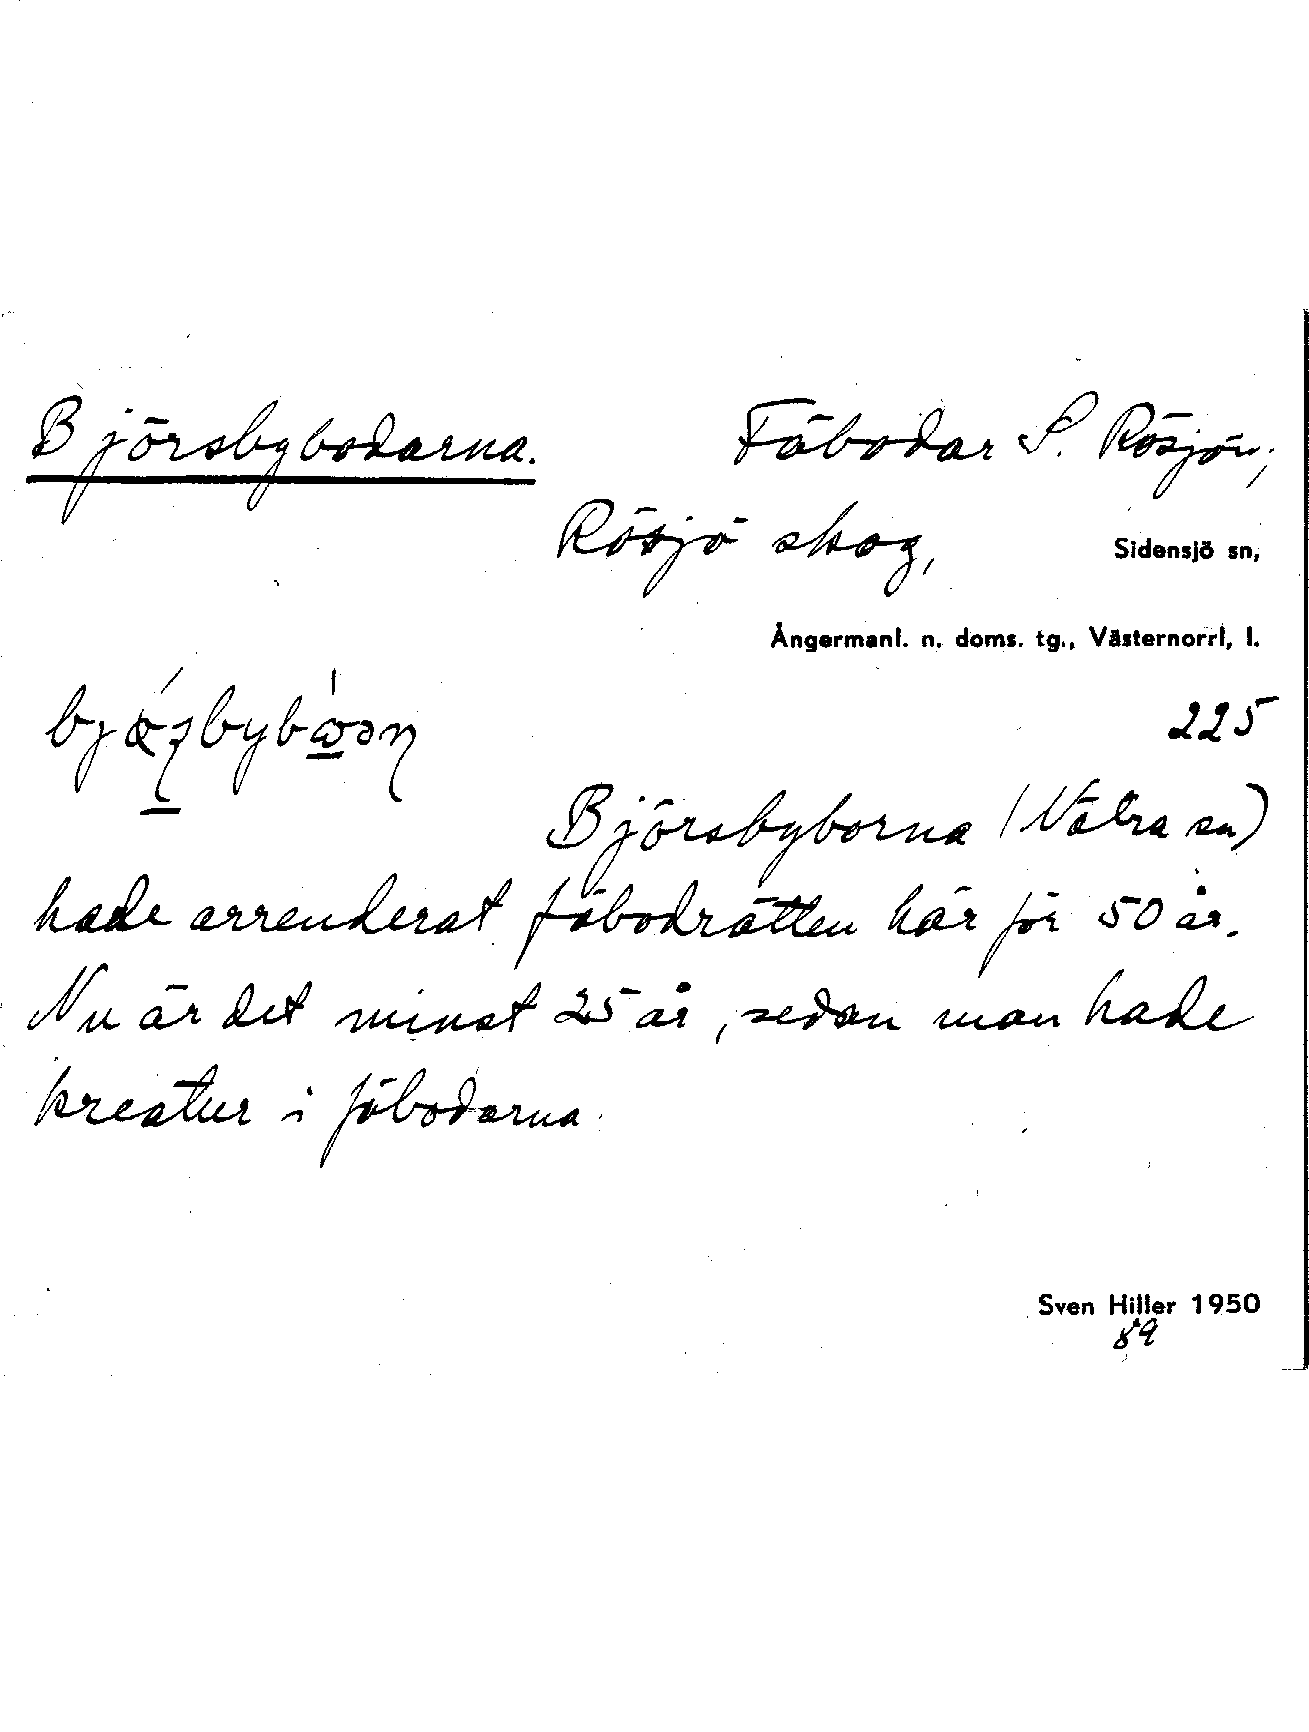 Björsbybodarna. Fäbodar S. Rösjön,
Rösjö skog, Sidensjö sn,
Ångermanl. n. doms. tg., Västernorrl. l.
225
Björsbyborna (Nätra sn)
hade arrenderat fäbodrätten här för 50 år.
Nu är det minst 25 år, sedan man hade
kreatur i fäbodarna.
Sven Hiller 1950
89